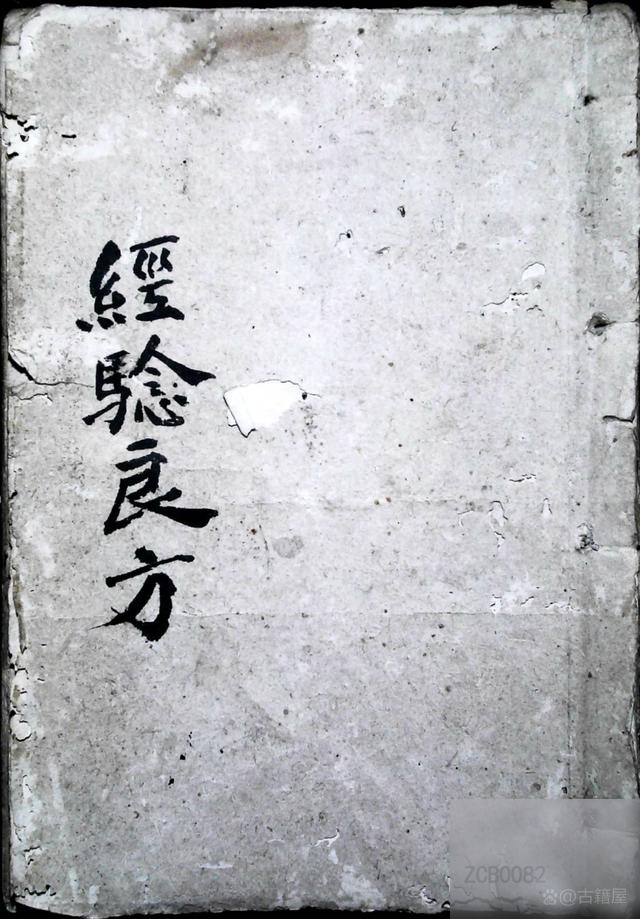 經驗良方
ZCB0082
@古籍屋